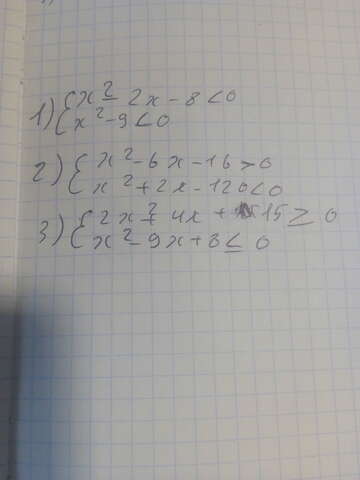 1) { x² - 2x - 8 < 0
{ x² - 9 < 0
2) { x² - 6x - 16 > 0
{ x² + 2x - 120 < 0
3) { 2x² + 4x + 15 ≥ 0
{ x² - 9x + 8 ≤ 0